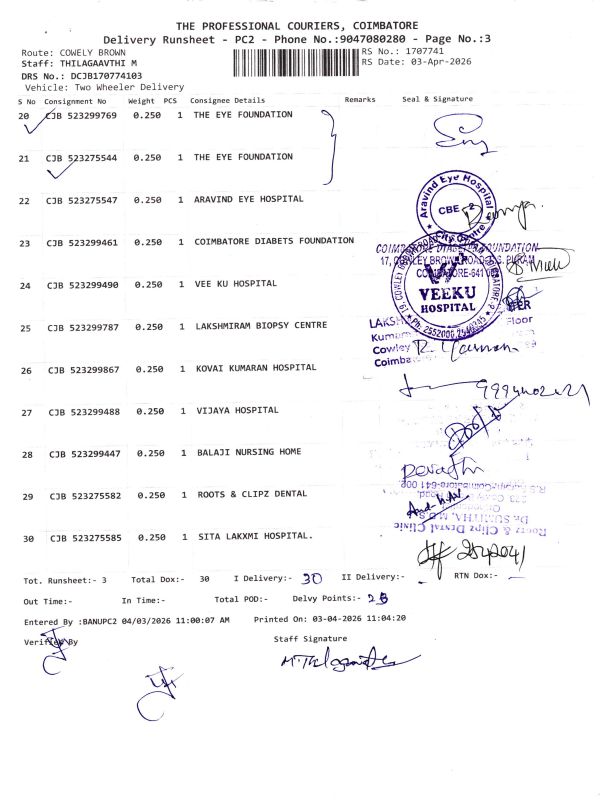 THE PROFESSIONAL COURIERS, COIMBATORE
Delivery Runsheet - PC2 - Phone No.:9047080280 - Page No.:3
Route: COWELY BROWN
RS No.: 1707741
Staff: THILAGAAVTHI M
RS Date: 03-Apr-2026
DRS No.: DCJB170774103
Vehicle: Two Wheeler Delivery
S No Consignment No Weight PCS Consignee Details Remarks Seal & Signature
20 CJB 523299769 0.250 1 THE EYE FOUNDATION
21 CJB 523275544 0.250 1 THE EYE FOUNDATION
22 CJB 523275547 0.250 1 ARAVIND EYE HOSPITAL
Aravind Eye Hospital
CBE - 2
23 CJB 523299461 0.250 1 COIMBATORE DIABETS FOUNDATION
COIMBATORE DIABETES FOUNDATION
17, COWLEY BROWN ROAD, R.S. PURAM
COIMBATORE-641 002
24 CJB 523299490 0.250 1 VEE KU HOSPITAL
VEEKU
HOSPITAL
Ph: 2552006, 2540345
25 CJB 523299787 0.250 1 LAKSHMIRAM BIOPSY CENTRE
Floor
Cowley
26 CJB 523299867 0.250 1 KOVAI KUMARAN HOSPITAL
27 CJB 523299488 0.250 1 VIJAYA HOSPITAL
28 CJB 523299447 0.250 1 BALAJI NURSING HOME
29 CJB 523275582 0.250 1 ROOTS & CLIPZ DENTAL
Dr. SUMITHA, M.D.S.
Roots & Clipz Dental Clinic
30 CJB 523275585 0.250 1 SITA LAKXMI HOSPITAL.
Tot. Runsheet:- 3 Total Dox:- 30 I Delivery:- 30 II Delivery:- RTN Dox:-
Out Time:- In Time:- Total POD:- Delvy Points:-
Entered By :BANUPC2 04/03/2026 11:00:07 AM Printed On: 03-04-2026 11:04:20
Verified By
Staff Signature